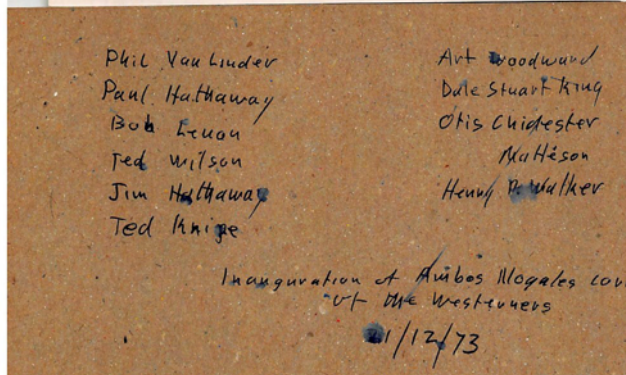 Phil Van Linder
Paul Hathaway
Bob Lenon
Ted Wilson
Jim Hathaway
Ted Knipe
Art Woodward
Dale Stuart King
Otis Chidester
Matteson
Henry P. Walker
Inauguration of Ambos Nogales
of the Westerners
1/12/73